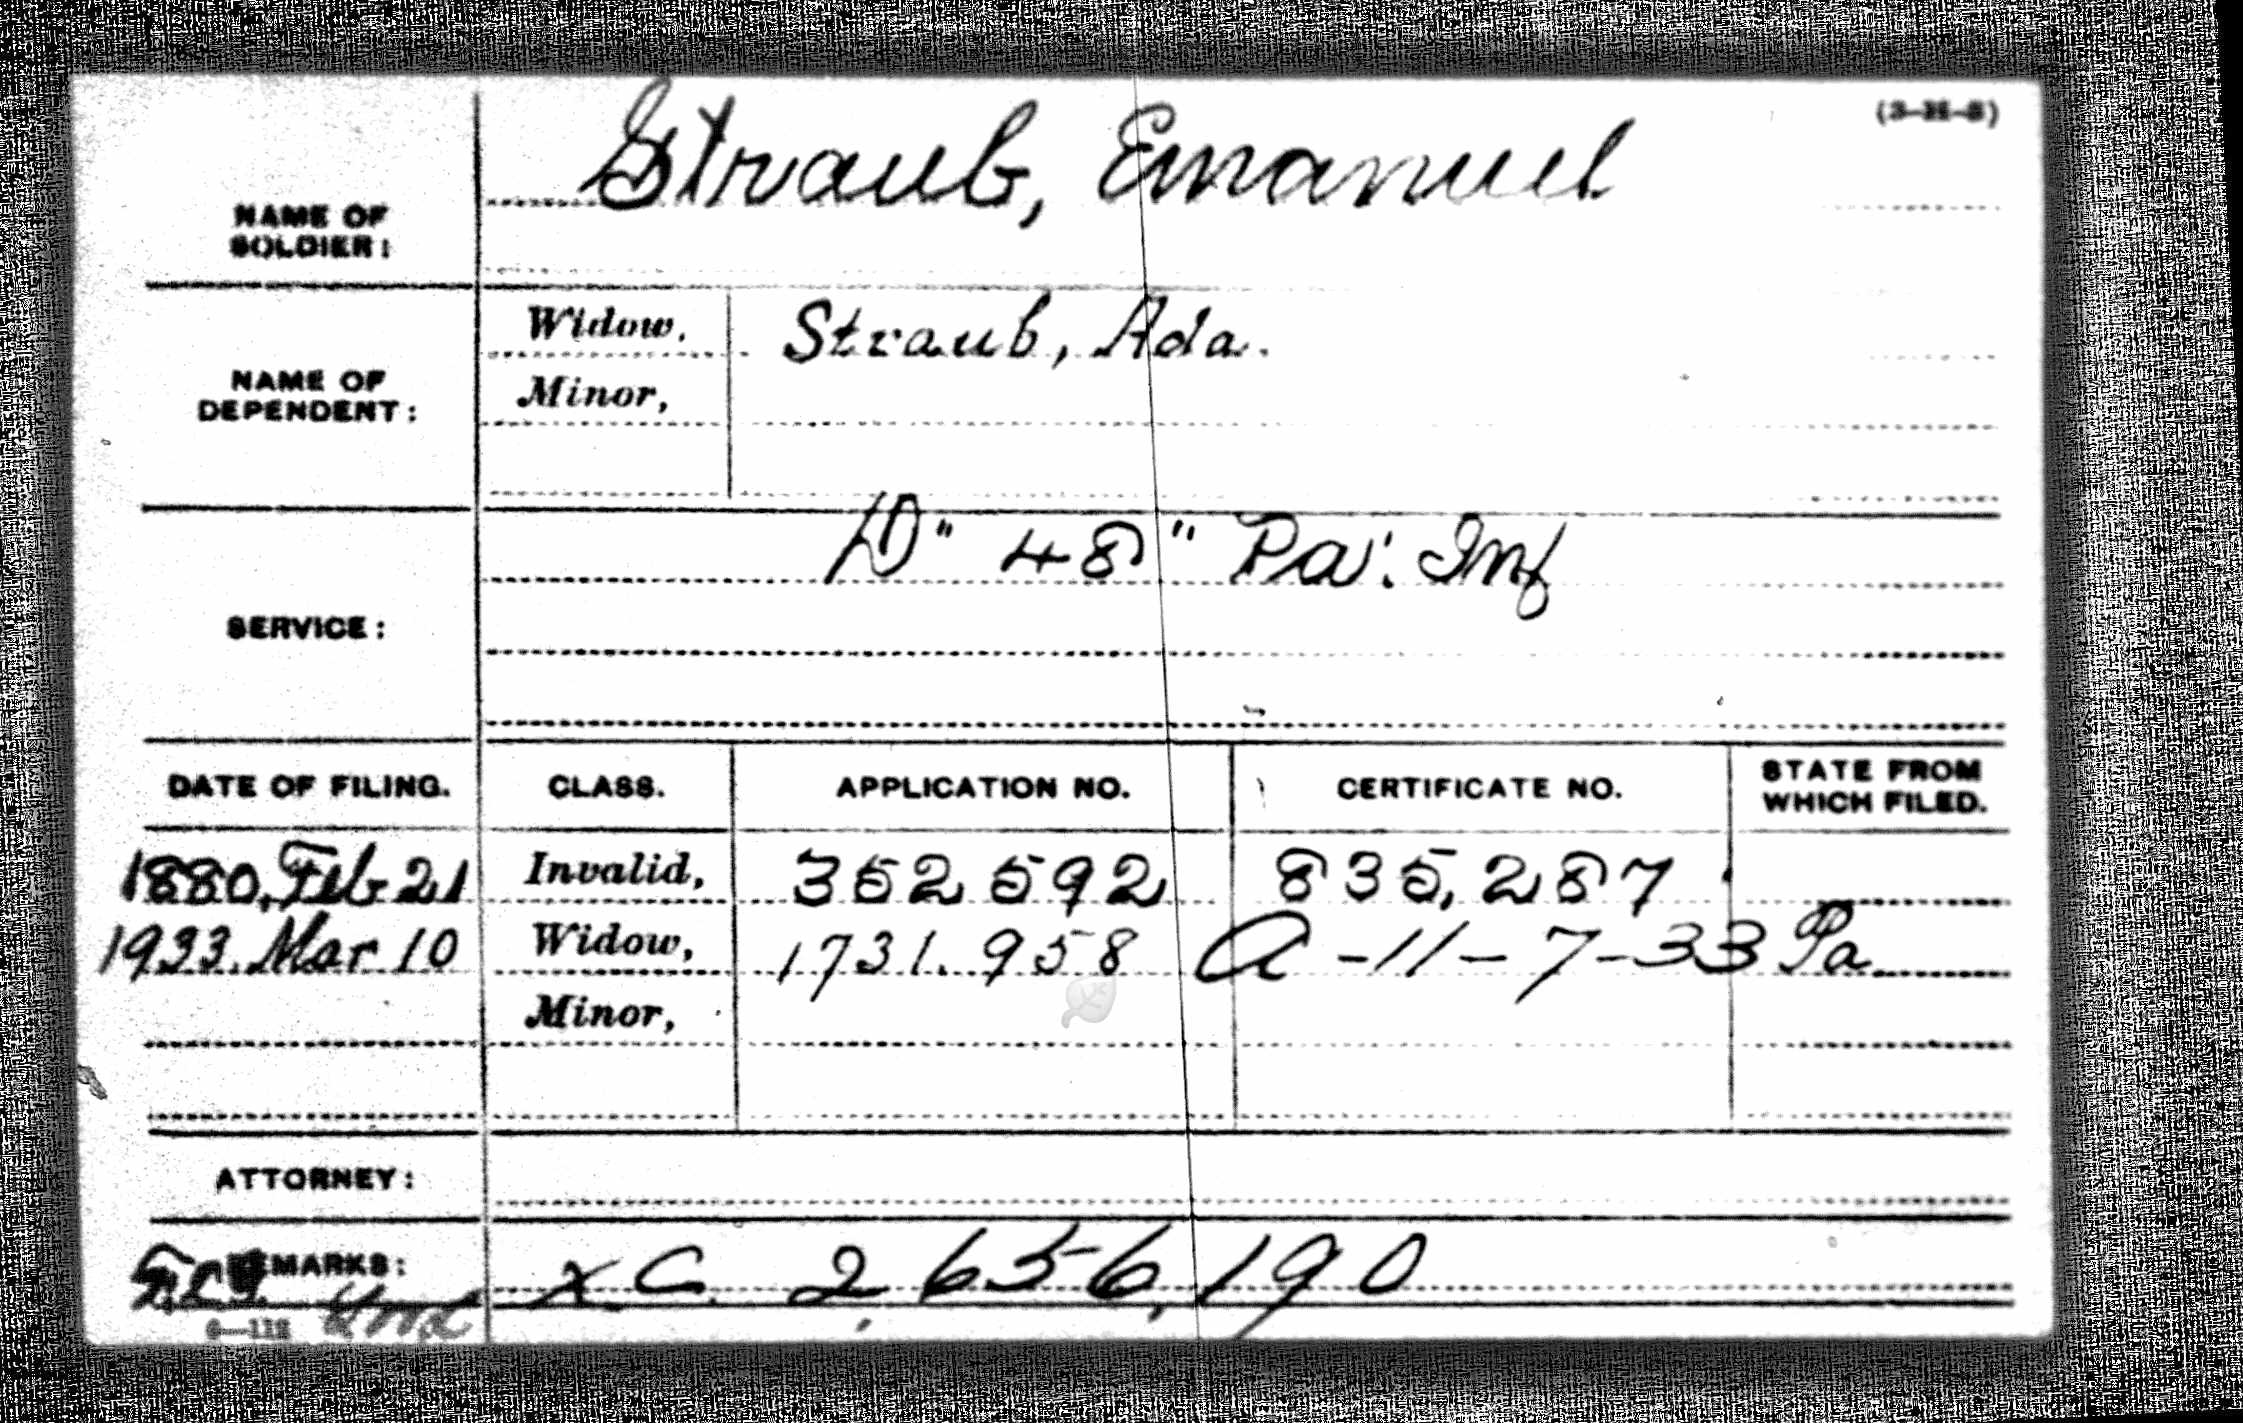 (3-H-S)
Straub, Emanuel
NAME OF
SOLDIER:
Widow, Straub, Ada.
NAME OF
DEPENDENT:
Minor,
D" 48" Pa: Inf
SERVICE:
DATE OF FILING. CLASS. APPLICATION NO. CERTIFICATE NO. STATE FROM WHICH FILED.
1880, Feb 21 Invalid, 352592 835,287
1933. Mar 10 Widow, 1731.958 A-11-7-33 Pa
Minor,
ATTORNEY:
REMARKS: XC 2,656,190
6-112